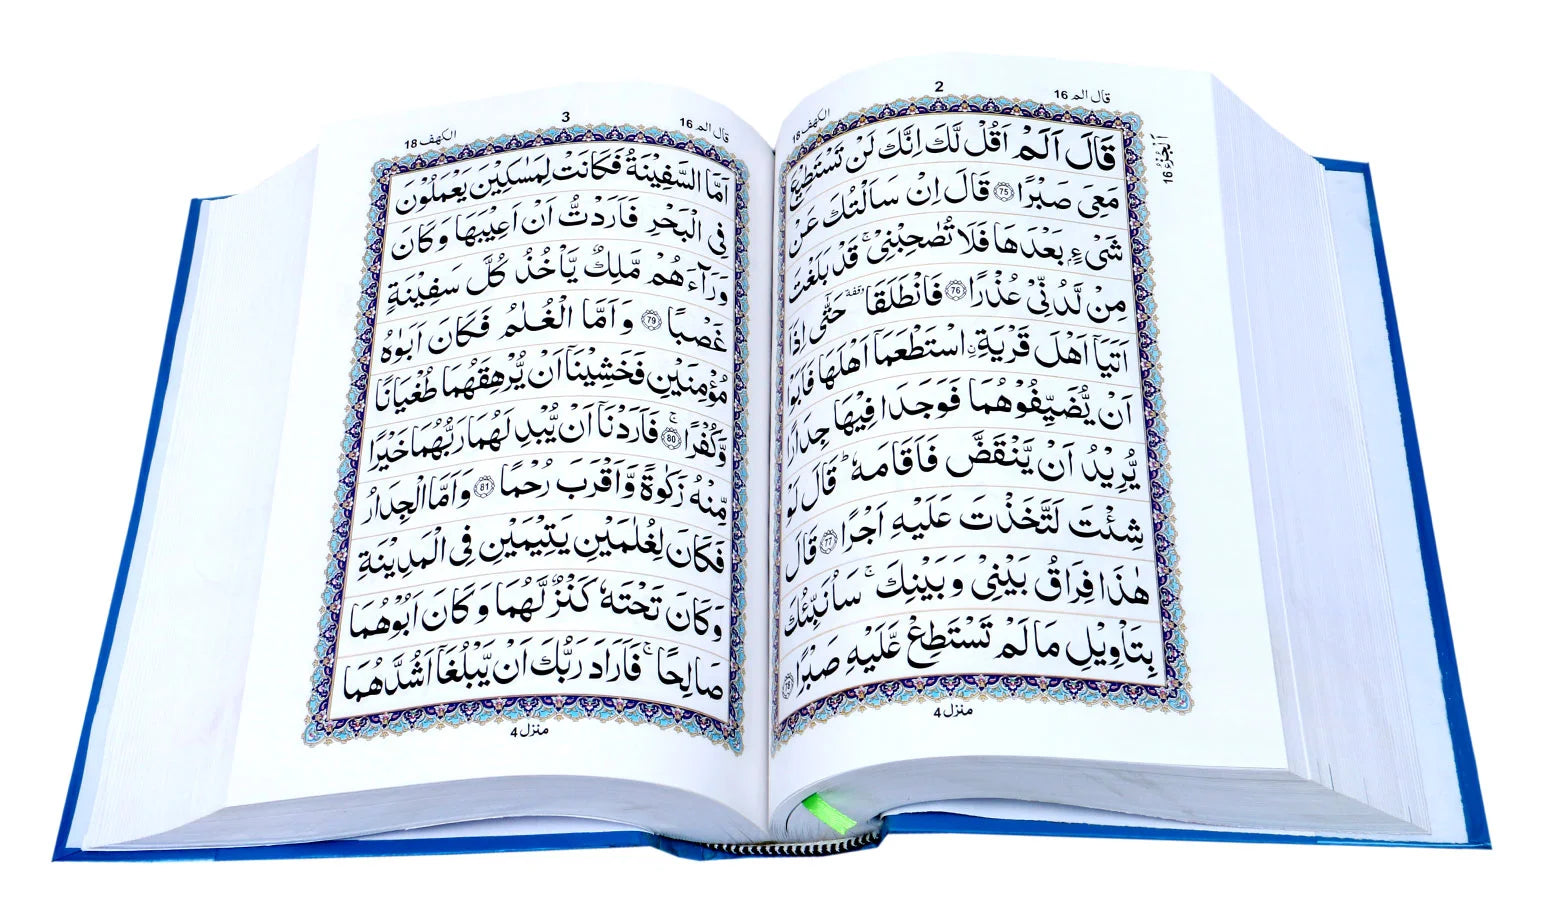 2
قال الم 16
الكهف 18
اَلْجُزْءُ 16
قَالَ اَلَمْ اَقُلْ لَّكَ اِنَّكَ لَنْ تَسْتَطِيْعَ
مَعِیَ صَبْرًا 75 قَالَ اِنْ سَاَلْتُكَ عَنْ
شَیْءٍۭ بَعْدَهَا فَلَا تُصٰحِبْنِیْ ۚ قَدْ بَلَغْتَ
مِنْ لَّدُنِّیْ عُذْرًا 76 فَانْطَلَقَا ٝ وقفة حَتّٰۤی اِذَاۤ
اَتَیَاۤ اَهْلَ قَرْیَةِ ۟اسْتَطْعَمَاۤ اَهْلَهَا فَاَبَوْا
اَنْ یُّضَیِّفُوْهُمَا فَوَجَدَا فِیْهَا جِدَارًا
یُّرِیْدُ اَنْ یَّنْقَضَّ فَاَقَامَهٗ ؕ قَالَ لَوْ
شِئْتَ لَتَّخَذْتَ عَلَیْهِ اَجْرًا 77 قَالَ
هٰذَا فِرَاقُ بَیْنِیْ وَ بَیْنِكَ ۚ سَاُنَبِّئُكَ
بِتَاْوِیْلِ مَا لَمْ تَسْتَطِعْ عَّلَیْهِ صَبْرًا 78
منزل 4
3
قال الم 16
الكهف 18
اَمَّا السَّفِیْنَةُ فَكَانَتْ لِمَسٰكِیْنَ یَعْمَلُوْنَ
فِی الْبَحْرِ فَاَرَدْتُّ اَنْ اَعِیْبَهَا وَ كَانَ
وَرَآءَهُمْ مَّلِكٌ یَّاْخُذُ كُلَّ سَفِیْنَةٍ
غَصْبًا 79 وَ اَمَّا الْغُلٰمُ فَكَانَ اَبَوٰهُ
مُؤْمِنَیْنِ فَخَشِیْنَاۤ اَنْ یُّرْهِقَهُمَا طُغْیَانًا
وَّ كُفْرًا ۚ 80 فَاَرَدْنَاۤ اَنْ یُّبْدِلَهُمَا رَبُّهُمَا خَیْرًا
مِّنْهُ زَكٰوةً وَّ اَقْرَبَ رُحْمًا 81 وَ اَمَّا الْجِدَارُ
فَكَانَ لِغُلٰمَیْنِ یَتِیْمَیْنِ فِی الْمَدِیْنَةِ
وَ كَانَ تَحْتَهٗ كَنْزٌ لَّهُمَا وَ كَانَ اَبُوْهُمَا
صَالِحًا ۚ فَاَرَادَ رَبُّكَ اَنْ یَّبْلُغَاۤ اَشُدَّهُمَا
منزل 4